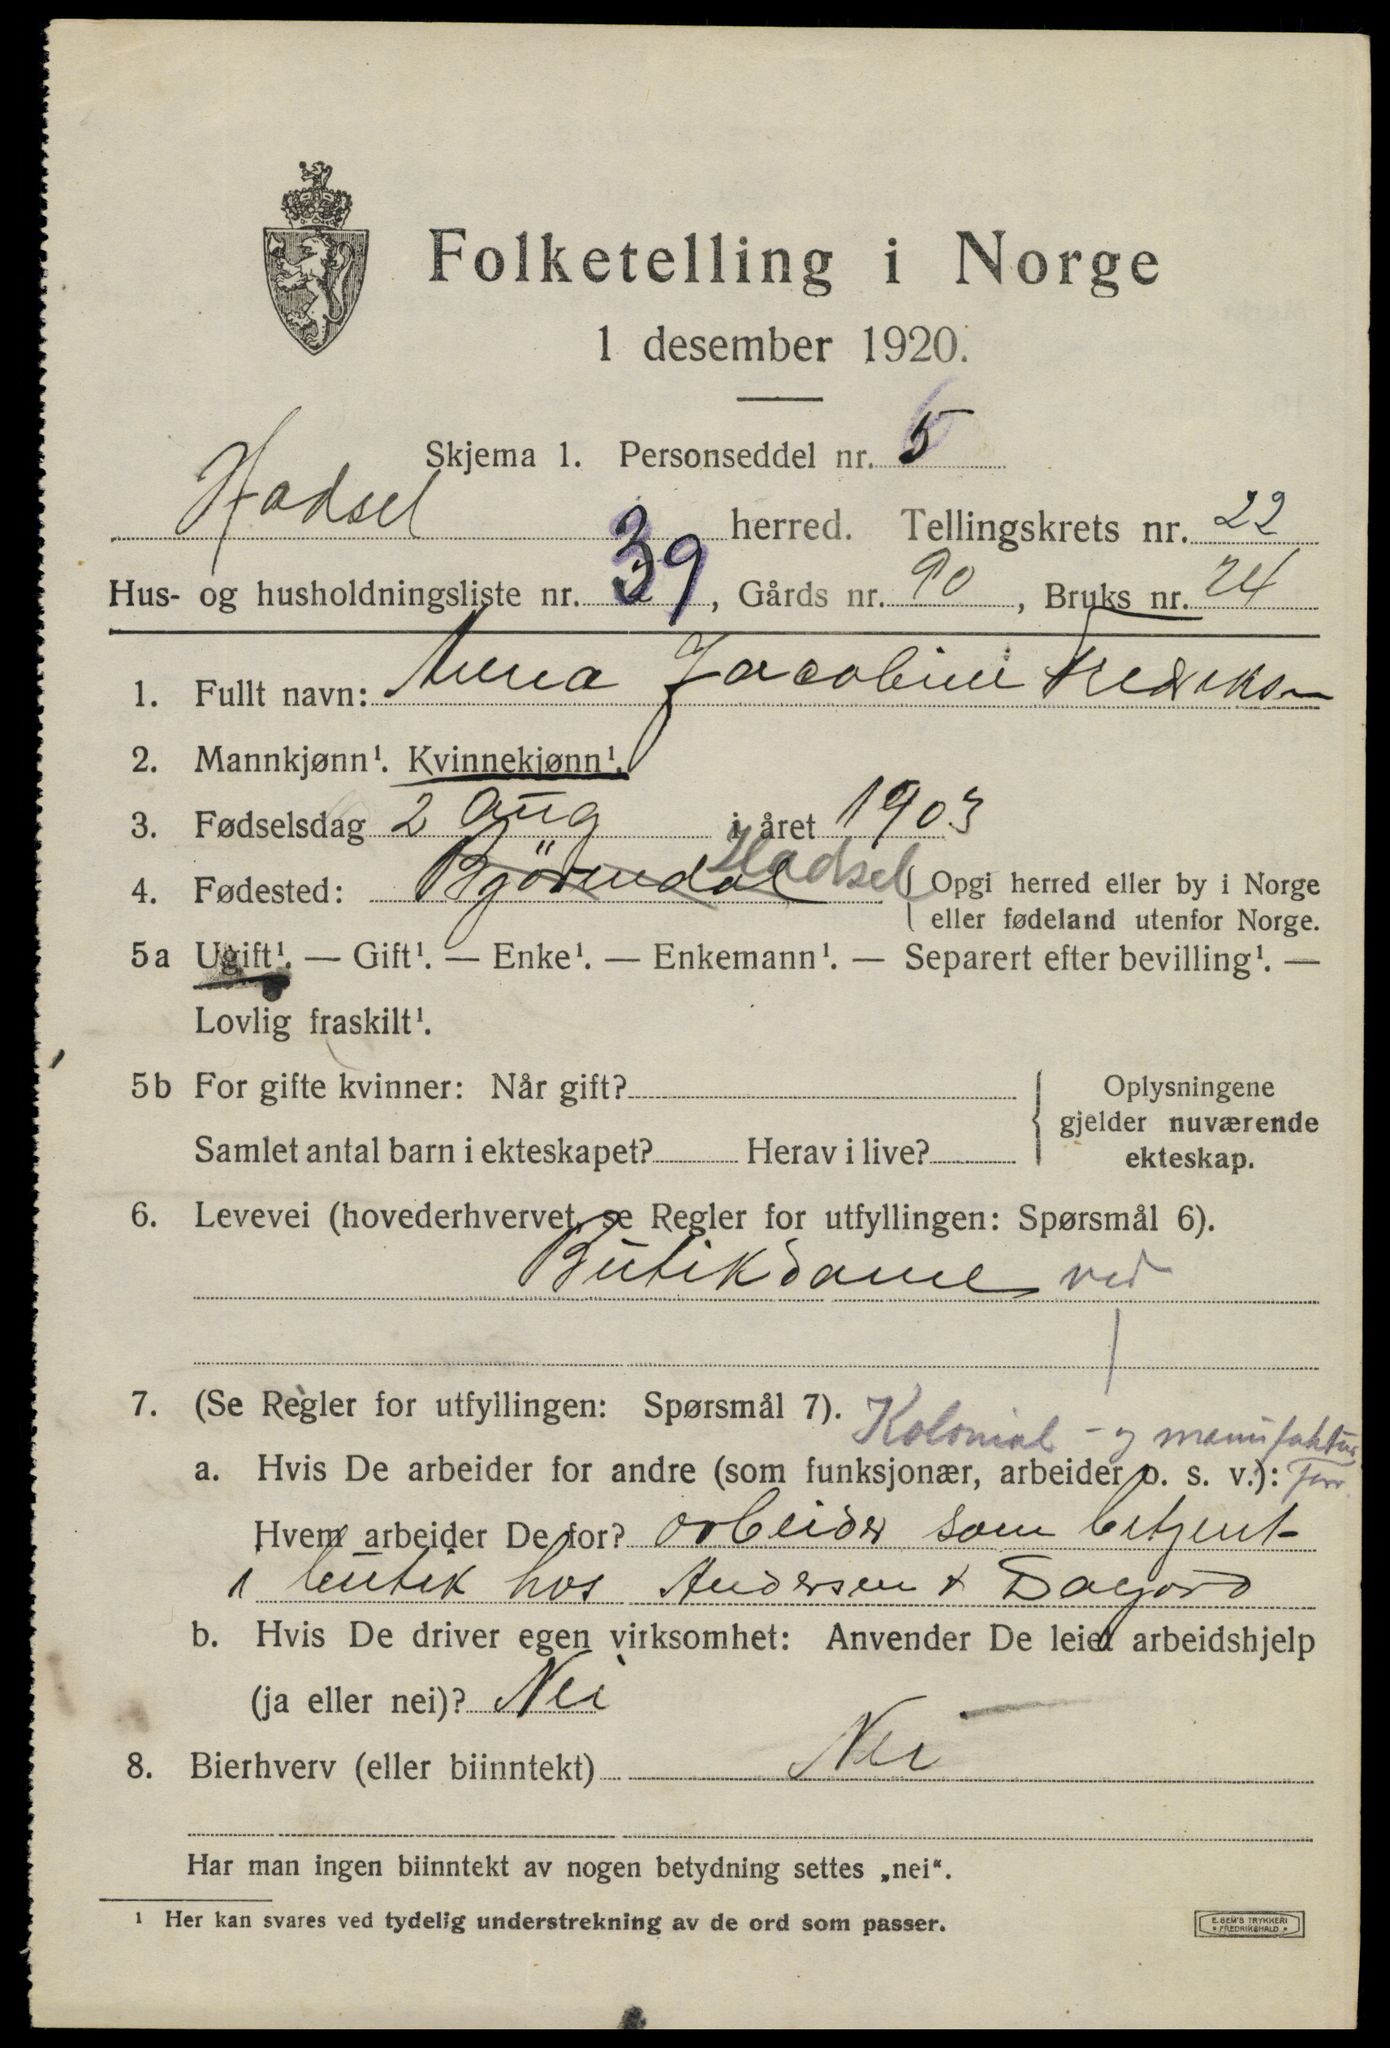 Folketelling i Norge
1 desember 1920.
Skjema 1. Personseddel nr. 5
Hadsel herred. Tellingskrets nr. 22
Hus- og husholdningsliste nr. 39, Gårds nr. 90, Bruks nr. 24
1. Fullt navn: Anna Jacobine Fredriksen
2. Mannkjønn¹. Kvinnekjønn¹.
3. Fødselsdag 2 aug i året 1903
4. Fødested: Bjørndal Hadsel { Opgi herred eller by i Norge
eller fødeland utenfor Norge.
5a Ugift¹. — Gift¹. — Enke¹. — Enkemann¹. — Separert efter bevilling¹. —
Lovlig fraskilt¹.
5b For gifte kvinner: Når gift?
Samlet antal barn i ekteskapet? Herav i live?
Oplysningene
gjelder nuværende
ekteskap.
6. Levevei (hovederhvervet, se Regler for utfyllingen: Spørsmål 6).
Butikdame ved
7. (Se Regler for utfyllingen: Spørsmål 7).
Kolonial - og manufaktur
forr.
a. Hvis De arbeider for andre (som funksjonær, arbeider o. s. v.):
Hvem arbeider De for? arbeider som betjent
i butik hos Andersen &
b. Hvis De driver egen virksomhet: Anvender De leiet arbeidshjelp
(ja eller nei)? Nei
8. Bierhverv (eller biinntekt) Nei
Har man ingen biinntekt av nogen betydning settes „nei“.
¹ Her kan svares ved tydelig understrekning av de ord som passer.
E. SEM'S TRYKKERI
* FREDRIKSHALD *